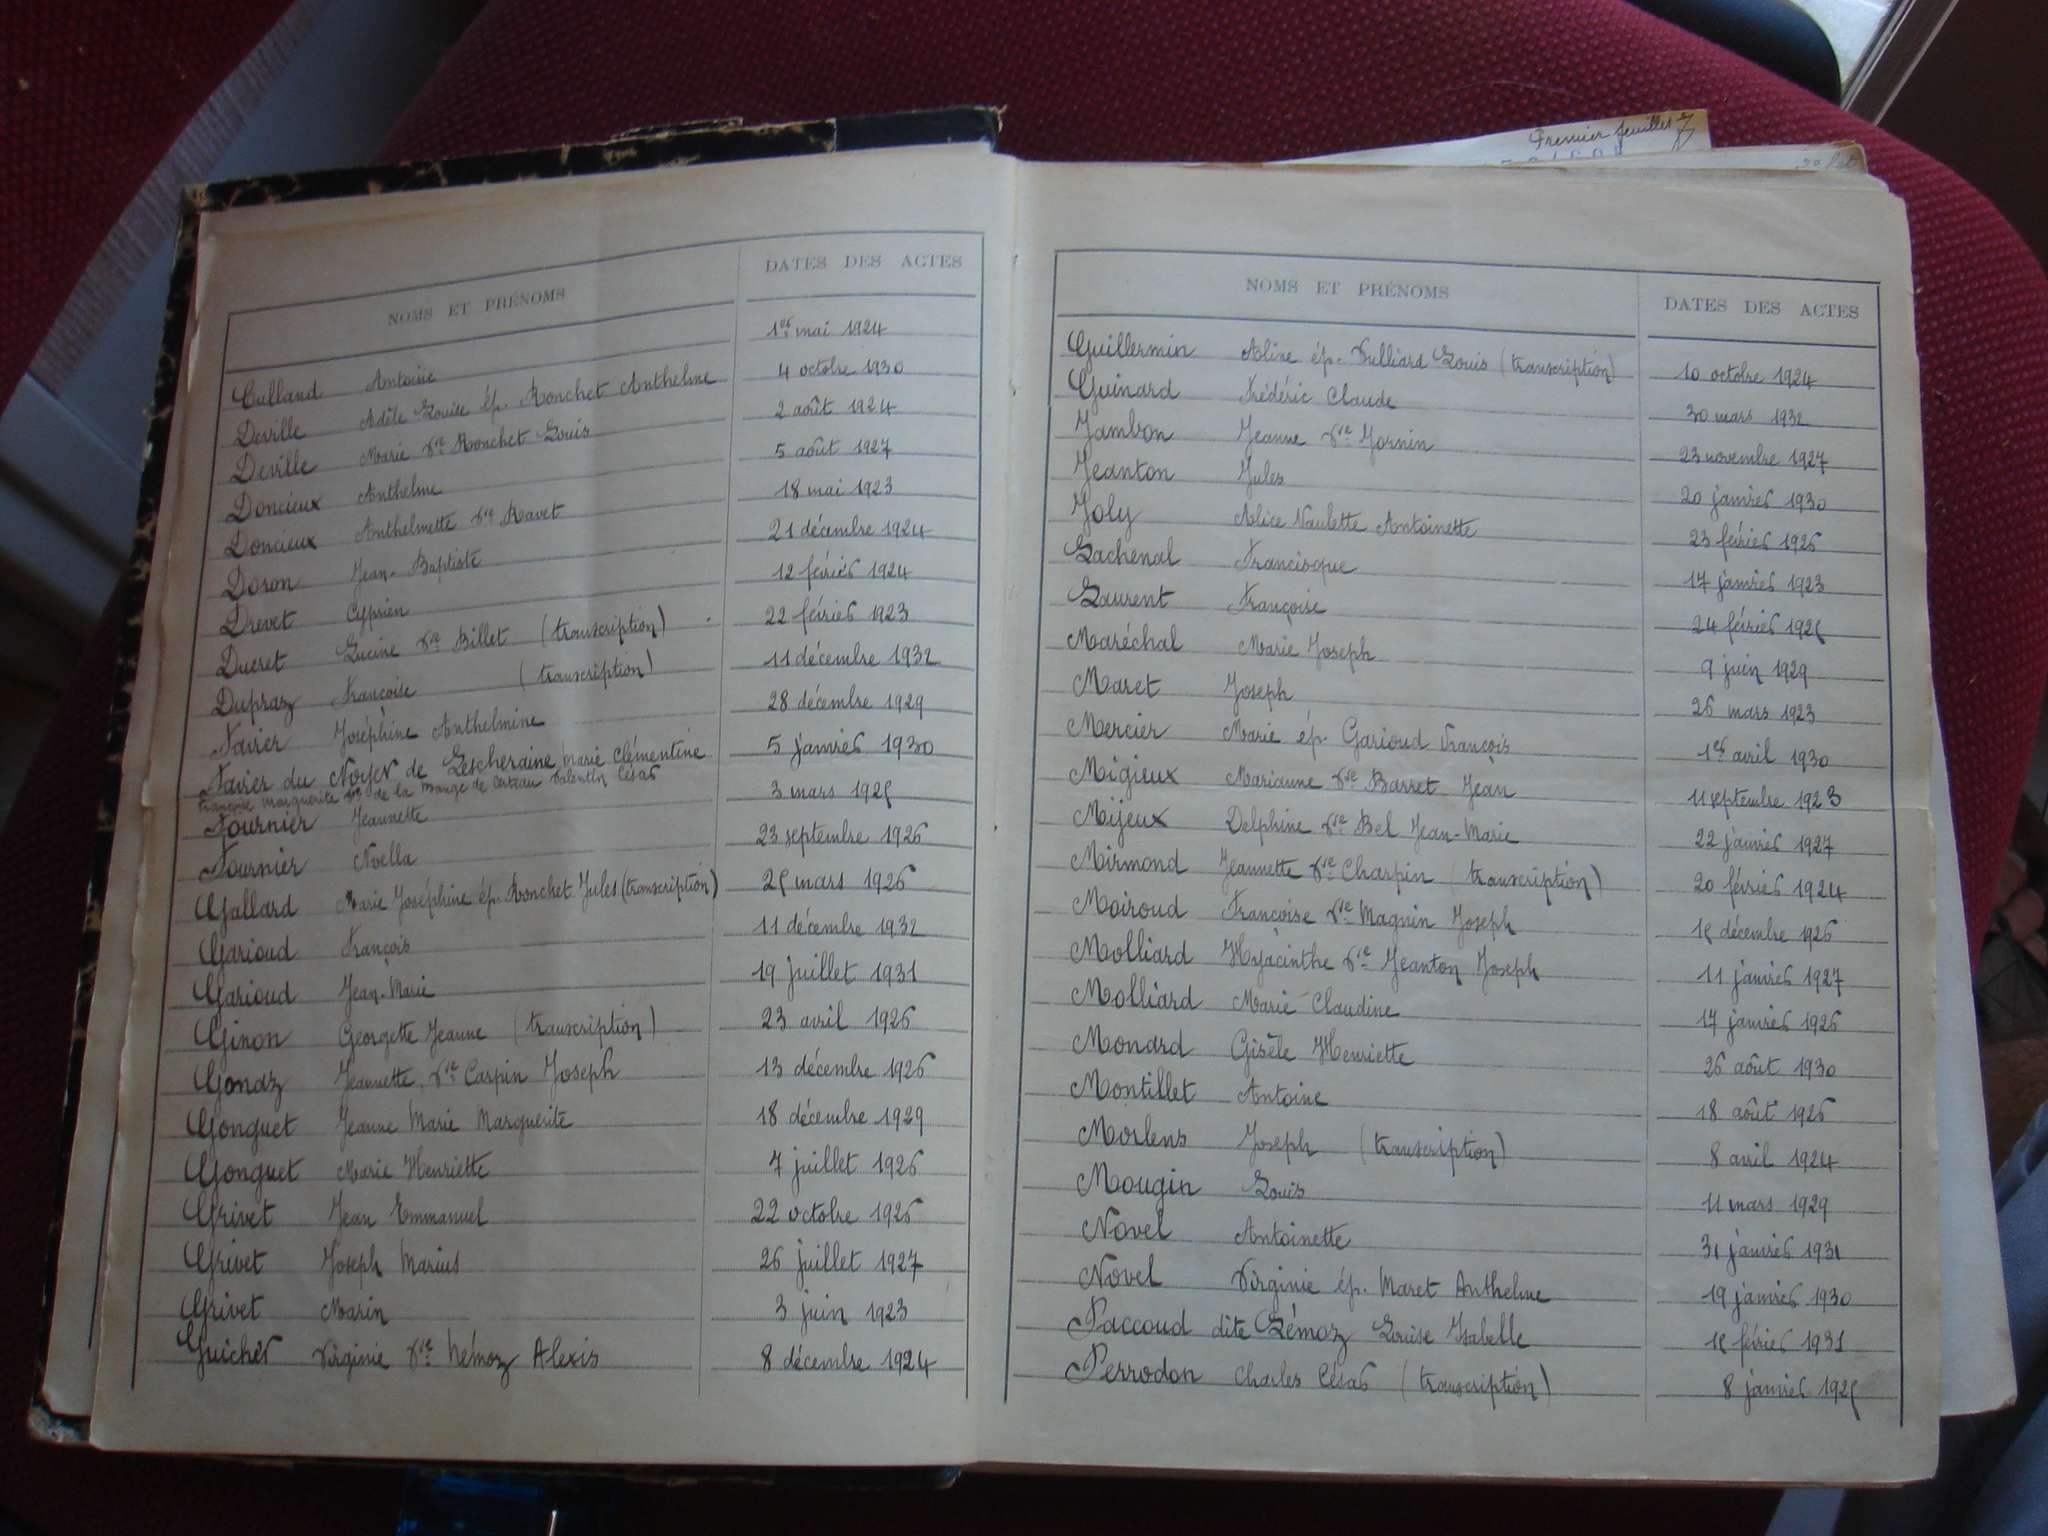 Premier feuillet
NOMS ET PRÉNOMS DATES DES ACTES
Culland Antoine 1er mai 1924
Deville Adèle Louise ép. Ronchet Anthelme 4 octobre 1930
Deville Marie Vve Ronchet Louis 2 août 1924
Doncieux Anthelme 5 août 1927
Doncieux Anthelmette Vve Ravet 18 mai 1923
Doron Jean-Baptiste 21 décembre 1924
Drevet Cyprien 12 février 1924
Ducret Lucine Vve Billet (transcription) 22 février 1923
Dupraz Françoise (transcription) 11 décembre 1932
Favier Joséphine Anthelmine 28 décembre 1929
Favier du Noyer de Lescheraine Marie Clémentine 5 janvier 1930
Françoise Marguerite Vve de la Mange de Certeau Valentin César
Fournier Jeannette 3 mars 1925
Fournier Noella 23 septembre 1926
Gallard Marie Joséphine ép. Ronchet Jules (transcription) 25 mars 1926
Garioud François 11 décembre 1932
Garioud Jean-Marie 19 juillet 1931
Ginon Georgette Jeanne (transcription) 23 avril 1926
Gonaz Jeannette Vve Carpin Joseph 13 décembre 1926
Gonguet Jeanne Marie Marguerite 18 décembre 1929
Gonguet Marie Henriette 7 juillet 1926
Grivet Jean Emmanuel 22 octobre 1926
Grivet Joseph Marius 26 juillet 1927
Grivet Marin 3 juin 1923
Guicher Virginie Vve Némoz Alexis 8 décembre 1924
NOMS ET PRÉNOMS DATES DES ACTES
Guillermin Aline ép. Vulliard Louis (transcription) 10 octobre 1924
Guinard Frédéric Claude 30 mars 1932
Jambon Jeanne Vve Jornin 23 novembre 1927
Jeanton Jules 20 janvier 1930
Joly Alice Naulette Antoinette 23 février 1926
Lachenal Francisque 17 janvier 1923
Laurent Françoise 24 février 1925
Maréchal Marie Joseph 9 juin 1929
Maret Joseph 26 mars 1923
Mercier Marie ép. Garioud François 1er avril 1930
Migieux Marianne Vve Barret Jean 11 septembre 1923
Mijeux Delphine Vve Bel Jean-Marie 22 janvier 1927
Mirmond Jeannette Vve Charpin (transcription) 20 février 1924
Moiroud Françoise Vve Magnin Joseph 15 décembre 1926
Molliard Hyacinthe Vve Jeanton Joseph 11 janvier 1927
Molliard Marie Claudine 17 janvier 1926
Monard Gisèle Henriette 26 août 1930
Montillet Antoine 18 août 1926
Morlens Joseph (transcription) 8 avril 1924
Mougin Louis 11 mars 1929
Novel Antoinette 31 janvier 1931
Novel Virginie ép. Maret Anthelme 19 janvier 1930
Paccoud dite Lémoz Louise Isabelle 15 février 1931
Perrodon Charles César (transcription) 8 janvier 1925